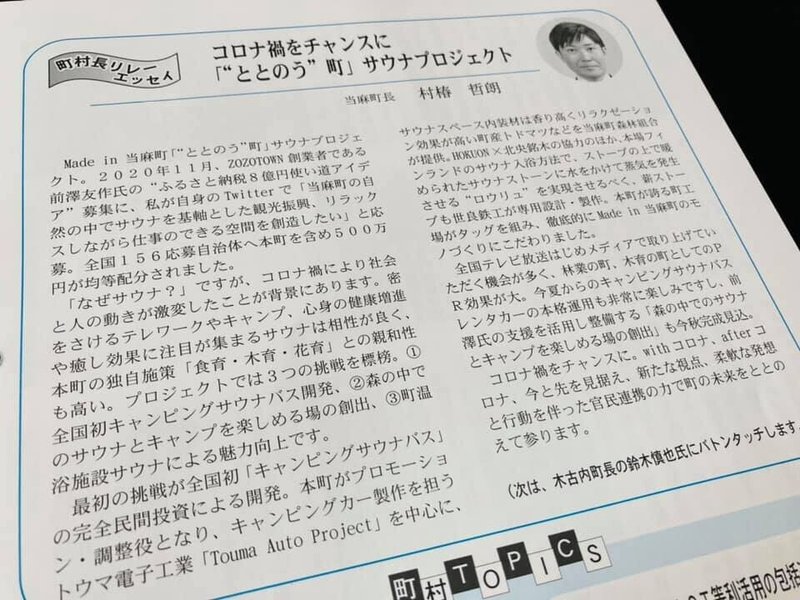 町村長リレー
エッセイ
コロナ禍をチャンスに
「“ととのう”町」サウナプロジェクト
当麻町長　村椿　哲朗
Made in 当麻町「“ととのう”町」サウナプロジェ
クト。２０２０年11月、ZOZOTOWN 創業者である
前澤友作氏の“ふるさと納税８億円使い道アイデ
ア”募集に、私が自身のTwitterで「当麻町の自
然の中でサウナを基軸とした観光振興、リラック
スしながら仕事のできる空間を創造したい」と応
募。全国１５６応募自治体へ本町を含め５００万
円が均等配分されました。
「なぜサウナ？」ですが、コロナ禍により社会
と人の動きが激変したことが背景にあります。密
をさけるテレワークやキャンプ、心身の健康増進
や癒し効果に注目が集まるサウナは相性が良く、
本町の独自施策「食育・木育・花育」との親和性
も高い。プロジェクトでは３つの挑戦を標榜。①
全国初キャンピングサウナバス開発、②森の中で
のサウナとキャンプを楽しめる場の創出、③町温
浴施設サウナによる魅力向上です。
最初の挑戦が全国初「キャンピングサウナバス」
の完全民間投資による開発。本町がプロモーショ
ン・調整役となり、キャンピングカー製作を担う
トウマ電子工業「Touma Auto Project」を中心に、
サウナスペース内装材は香り高くリラクゼーショ
ン効果が高い町産トドマツなどを当麻町森林組合
が提供。HOKUON×北央銘木の協力のほか、本場フィ
ンランドのサウナ入浴方法で、ストーブの上で暖
められたサウナストーンに水をかけて蒸気を発生
させる“ロウリュ”を実現させるべく、新ストー
ブも世良鉄工が専用設計・製作。本町が誇る町工
場がタッグを組み、徹底的にMade in 当麻町のモ
ノづくりにこだわりました。
全国テレビ放送はじめメディアで取り上げてい
ただく機会が多く、林業の町、木育の町としてのP
R効果が大。今夏からのキャンピングサウナバス
レンタカーの本格運用も非常に楽しみですし、前
澤氏の支援を活用し整備する「森の中でのサウナ
とキャンプを楽しめる場の創出」も今秋完成見込。
コロナ禍をチャンスに。withコロナ、afterコ
ロナ、今と先を見据え、新たな視点、柔軟な発想
と行動を伴った官民連携の力で町の未来をととの
えて参ります。
（次は、木古内町長の鈴木慎也氏にバトンタッチします。
町村TOPICS